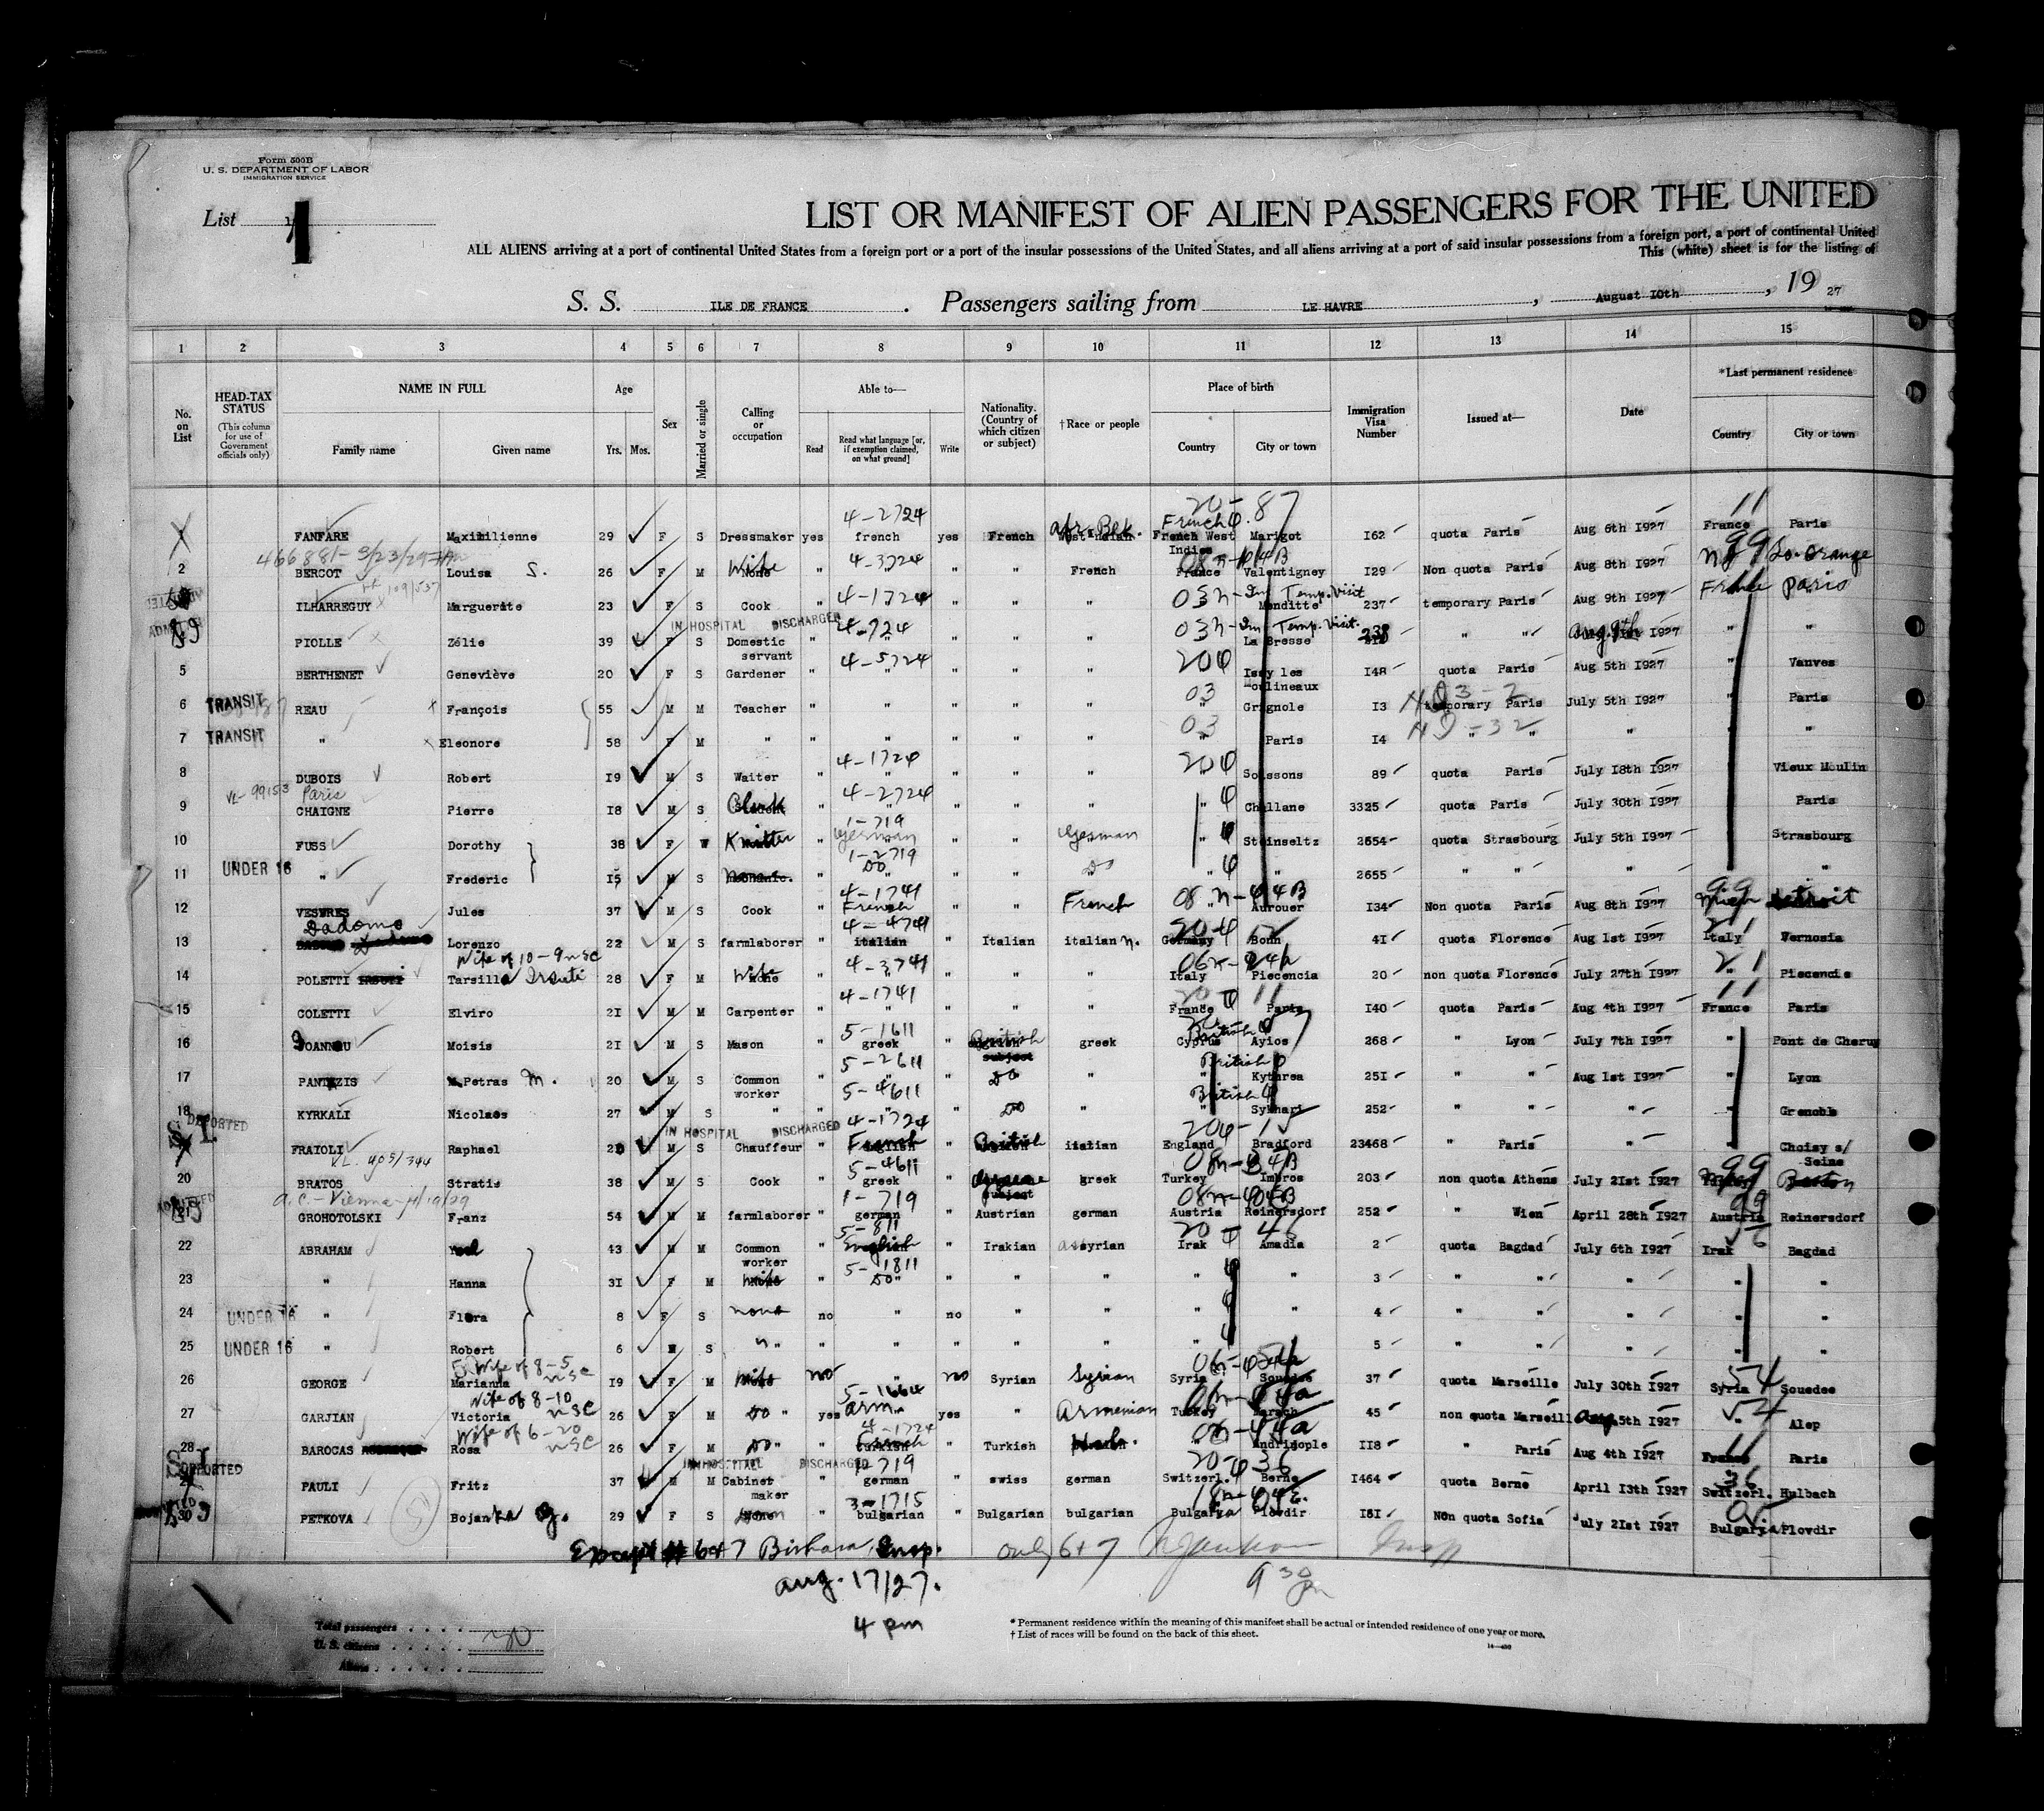 Form 500B
U. S. DEPARTMENT OF LABOR
IMMIGRATION SERVICE
List 1
LIST OR MANIFEST OF ALIEN PASSENGERS FOR THE UNITED
ALL ALIENS arriving at a port of continental United States from a foreign port or a port of the insular possessions of the United States, and all aliens arriving at a port of said insular possessions from a foreign port, a port of continental United
This (white) sheet is for the listing of
S. S. ILE DE FRANCE . Passengers sailing from LE HAVRE , August 10th , 19 27
1 2 3 4 5 6 7 8 9 10 11 12 13 14 15
No. on List HEAD-TAX STATUS (This column for use of Government officials only) NAME IN FULL Family name Given name Age Yrs. Mos. Sex Married or single Calling or occupation Able to— Read Read what language [or, if exemption claimed, on what ground] Write Nationality. (Country of which citizen or subject) †Race or people Place of birth Country City or town Immigration Visa Number Issued at— Date *Last permanent residence Country City or town
20-87
4-2724 French 11
FANFARE Maximilienne 29 F S Dressmaker yes french yes French West Indian Afr. Blk. French West Indies Marigot I62 quota Paris Aug 6th I927 France Paris
466881-3/23/29
2 BERCOT Louisa S. 26 F M None Wife " 4-3724 " " French France Valentigney I29 Non quota Paris Aug 8th I927 NJ 99 So. Orange
ILHARREGUY Marguerite 23 F S Cook " 4-1724 " " " 03n- Temp. Visit Menditte 237 temporary Paris Aug 9th I927 France Paris
IN HOSPITAL DISCHARGED
PIOLLE Zélie 39 F S Domestic servant " 4-724 " " " 03n- Temp. Visit. La Bresse 238 " " Aug 9th I927 " "
5 BERTHENET Geneviève 20 F S Gardener " 4-5724 " " " 20 Issy les Moulineaux I48 quota Paris Aug 5th I927 " Vanves
6 TRANSIT REAU François 55 M M Teacher " " " " " 03 " Grignole I3 temporary Paris July 5th I927 " Paris
7 TRANSIT " Eleonore 58 F M " " " " " " 03 Paris I4 " " " " "
8 DUBOIS Robert I9 M S Waiter " 4-1724 " " " 20 Soissons 89 quota Paris July I8th I927 Vieux Moulin
VL-99153 Paris
9 CHAIGNE Pierre I8 M S Clerk " 4-2724 " " " " Challane 3325 quota Paris July 30th I927 Paris
10 FUSS Dorothy 38 F W Knitter " 1-719 German " " German " Steinseltz 2654 quota Strasbourg July 5th I927 Strasbourg
11 UNDER 16 " Frederic I5 M S Mechanic. " 1-2719 Do " " Do " " 2655 " " " "
12 VESVRES Jules 37 M S Cook " 4-1741 French " " French 08n-44B Aurouer I34 Non quota Paris Aug 8th I927 Mich 99 Detroit
13 Dadomo Lorenzo 22 M S farmlaborer " 4-4741 italian " Italian italian n. Germany Bonn 4I quota Florence Aug Ist I927 Italy Vernosia
Wife of 10-9 nsc
14 POLETTI Tarsilla 28 F M Wife " 4-3741 " " " Italy Piecencia 20 non quota Florence July 27th I927 Piecencia
15 COLETTI Elviro 2I M M Carpenter " 4-1741 " " " France Paris I40 quota Paris Aug 4th I927 France Paris
16 JOANNOU Moisis 2I M S Mason " 5-1611 greek " British subject greek British Cyprus Ayios 268 " Lyon July 7th I927 " Pont de Cheruy
17 PANTAZIS Petras M. 20 M S Common worker " 5-2611 " " Do " British Kythrea 25I " " Aug Ist I927 Lyon
18 KYRKALI Nicolaes 27 M S " " 5-4611 " " Do " British Sykhari 252 " " " " Grenoble
DEPORTED S. I. IN HOSPITAL DISCHARGED
FRATOLI Raphael 2 M S Chauffeur " 4-1724 French " British italian England Bradford 23468 " Paris " " Choisy s/ Seine
VL. 405/344
20 BRATOS Stratis 38 M S Cook " 5-4611 greek " subject greek Turkey Imbros 203 non quota Athens July 2Ist I927 99 Boston
a.c.-Vienna-4/10/29
GROHOTOLSKI Franz 54 M M farmlaborer " 1-719 german " Austrian german Austria Reinersdorf 252 " Wien April 28th I927 Austria 99 Reinersdorf
22 ABRAHAM 43 M M Common worker " 5-811 English " Irakian assyrian Irak Amadia 2 quota Bagdad July 6th I927 Irak Bagdad
23 " Hanna 3I F M Wife " 5-1811 Do " " " " " " 3 " " " " "
24 UNDER 16 " Flora 8 F S none no " no " " " " 4 " " " " "
25 UNDER 16 " Robert 6 M S " " " " " " " " 5 " " " " "
Wife of 8-5 nsc
26 GEORGE Marianna I9 F M Wife no " no Syrian Syrian Syria Souedee 37 quota Marseille July 30th I927 Syria 54 Souedee
Wife of 8-10 nsc
27 GARJIAN Victoria 26 F M Do " yes 5-1664 Arm. yes " Armenian Turkey Marsch 45 non quota Marseille Aug 5th I927 " Alep
Wife of 6-20 nsc
28 BAROCAS Rosa 26 F M Do " " 4-1724 French " Turkish Heb. " Andrinople II8 " Paris Aug 4th I927 France 11 Paris
S. I. DEPORTED IN HOSPITAL DISCHARGED
PAULI Fritz 37 M M Cabinet maker " 1-719 german " swiss german Switzerl. Berne I464 quota Berne April I3th I927 Switzerl. 36 Hulbach
30 PETKOVA Bojanka 29 F S None " 3-1715 bulgarian " Bulgarian bulgarian Bulgarya Plovdir I5I Non quota Sofia July 2Ist I927 Bulgaria Plovdir
Except # 6+7 Bishara, Insp. only 6+7 Insp
Aug. 17/27. 9 30 pm
4 pm
Total passengers . . . . 30
U. S. citizens . . . . .
Aliens . . . . . .
* Permanent residence within the meaning of this manifest shall be actual or intended residence of one year or more.
† List of races will be found on the back of this sheet.